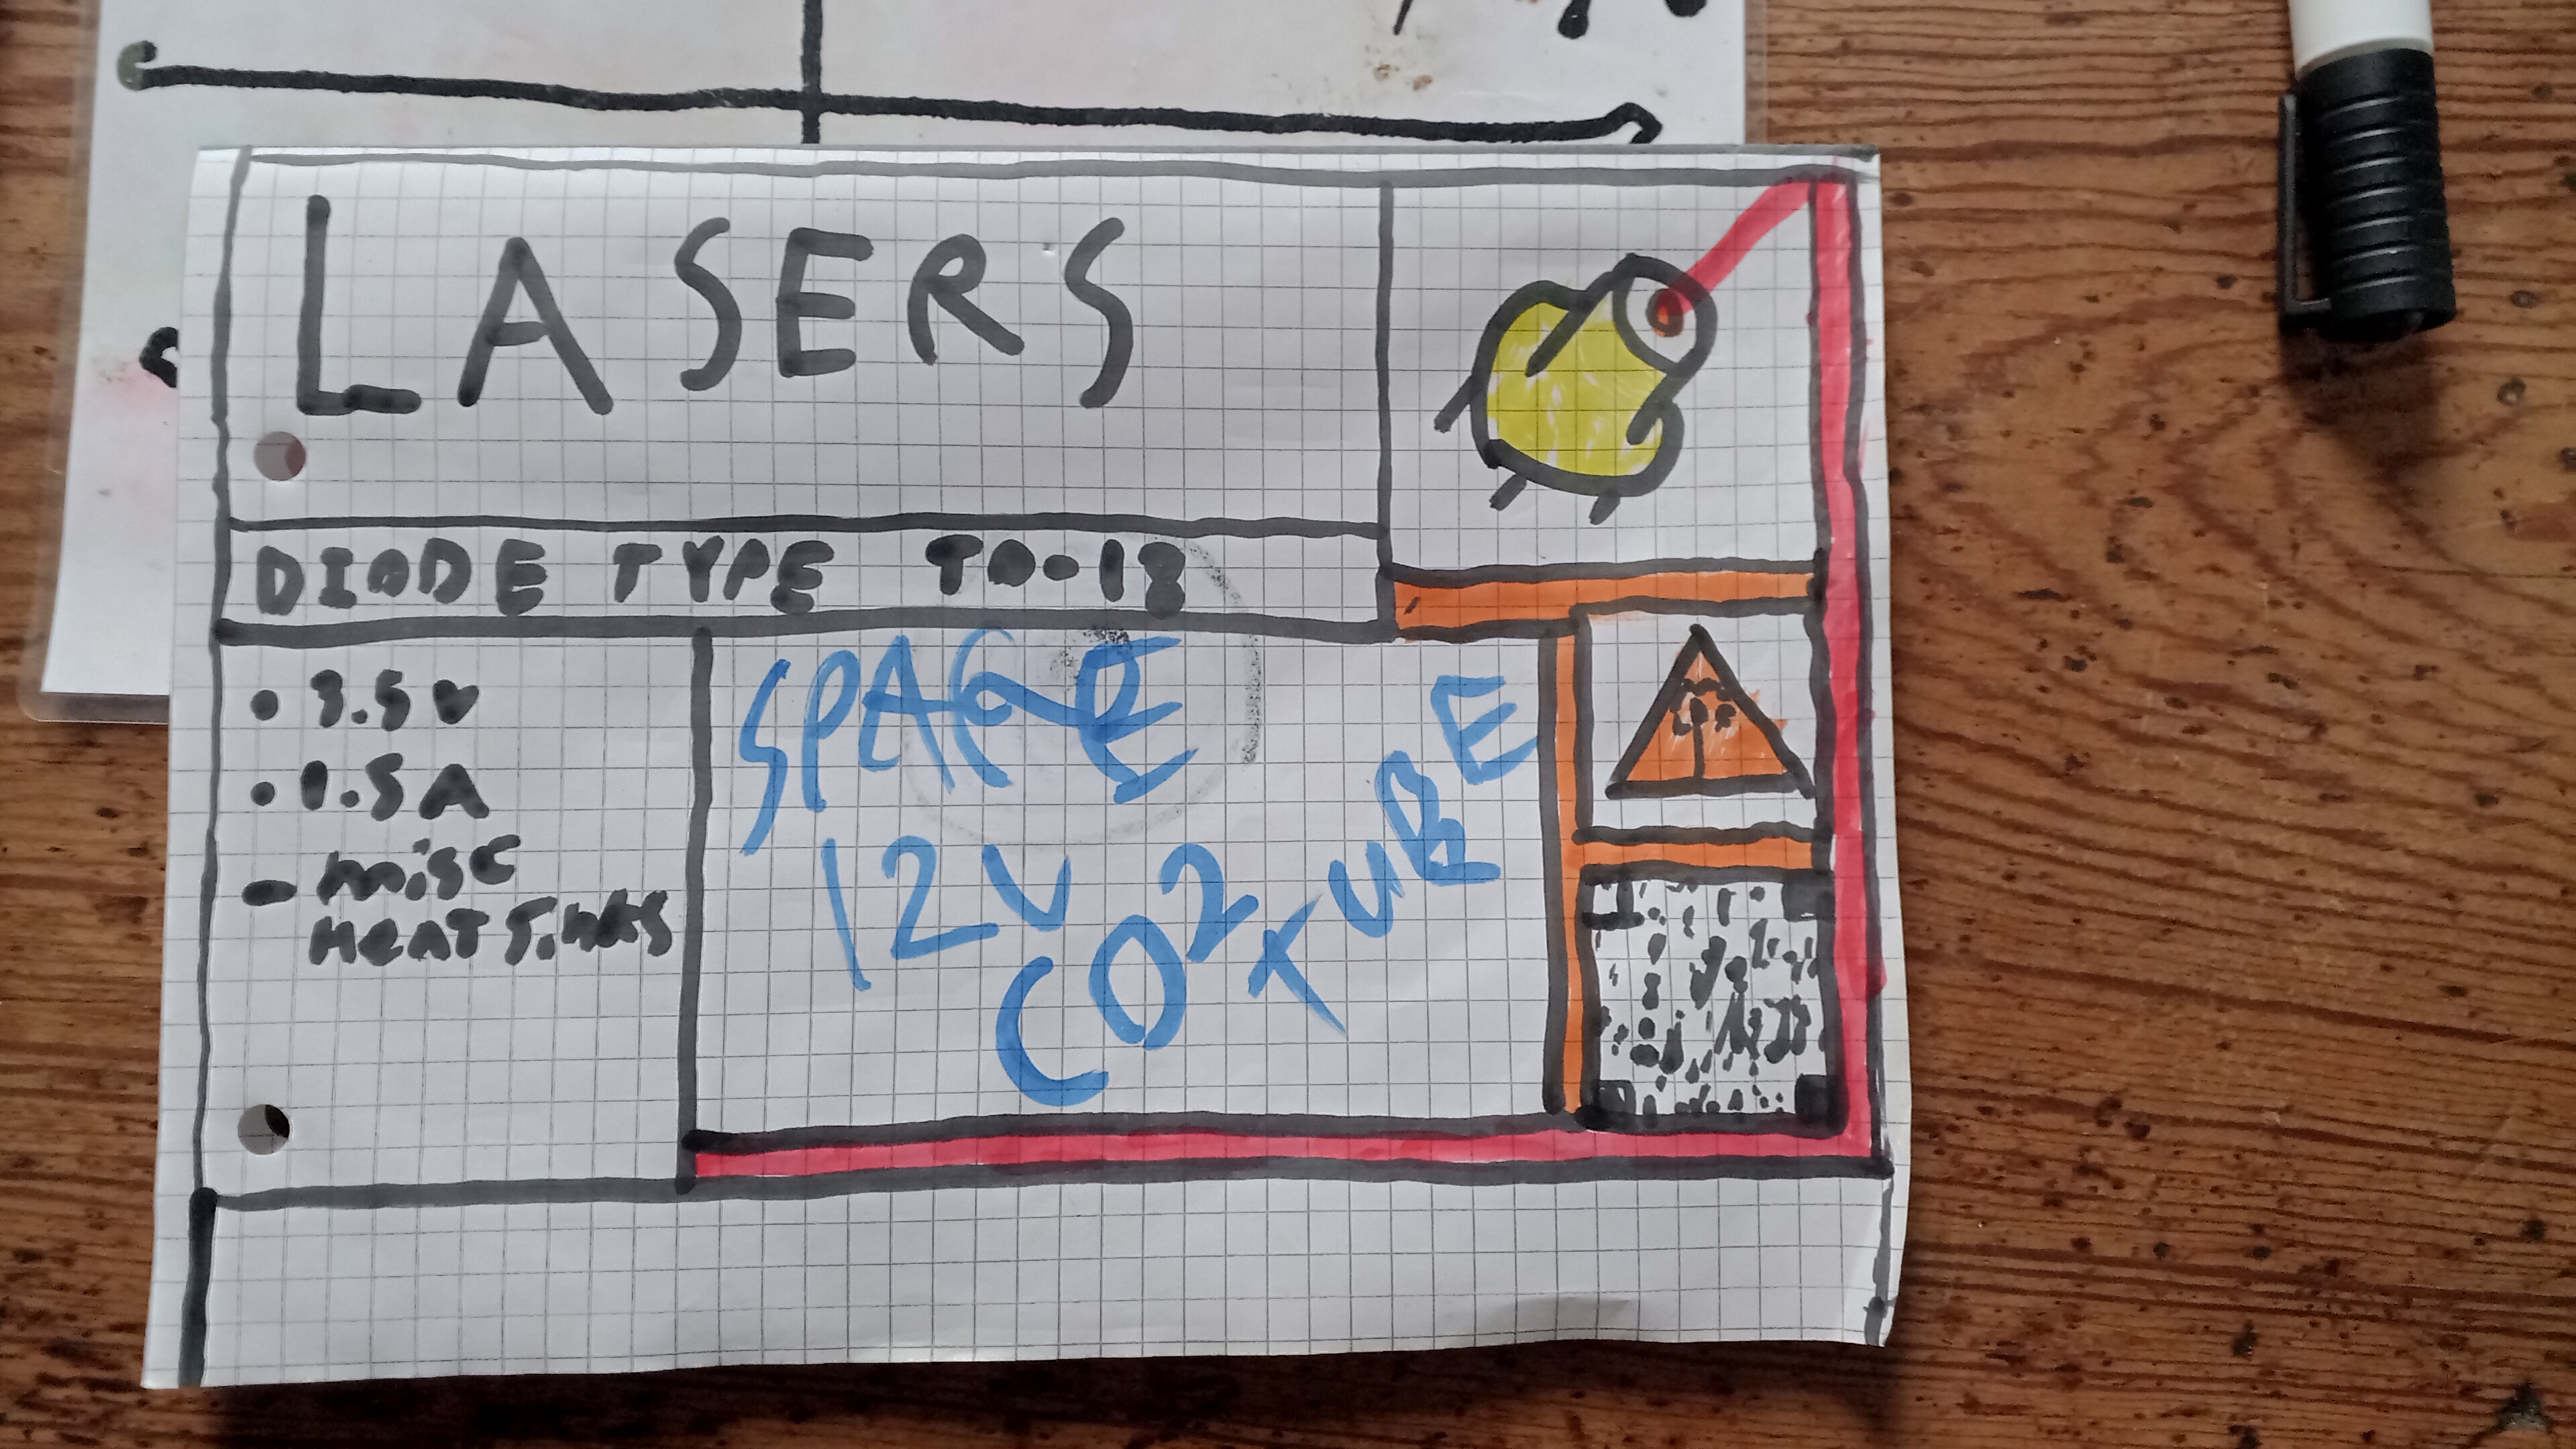 LASERS
DIODE TYPE TO-18
• 3.5V
• 1.5A
- misc
HEAT SINKS
SPARE
12V
CO2 TUBE